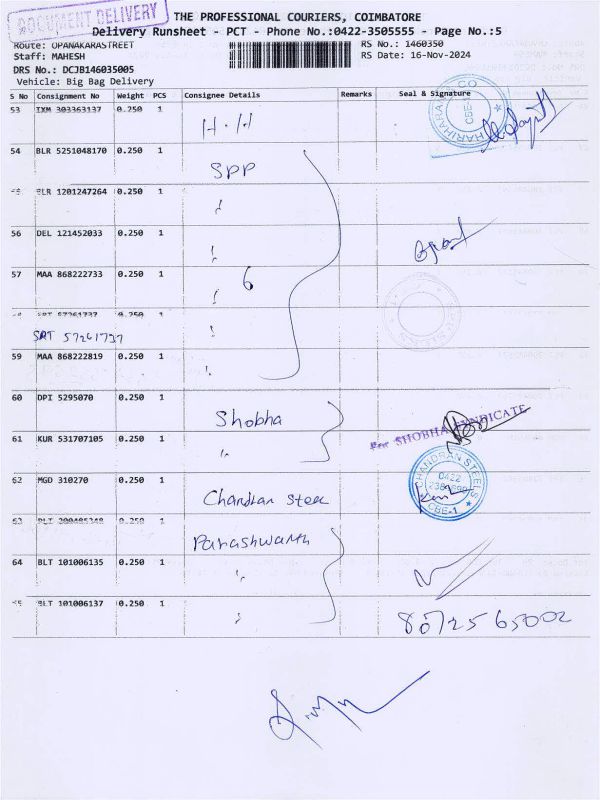 DOCUMENT DELIVERY
THE PROFESSIONAL COURIERS, COIMBATORE
Delivery Runsheet - PCT - Phone No.:0422-3505555 - Page No.:5
Route: OPANAKARASTREET RS No.: 1460350
Staff: MAHESH RS Date: 16-Nov-2024
DRS No.: DCJB146035005
Vehicle: Big Bag Delivery
S No Consignment No Weight PCS Consignee Details Remarks Seal & Signature
53 IXM 303363137 0.250 1
H.H
HARIHARAN CO
CBE-1
54 BLR 5251048170 0.250 1
SPP
55 BLR 1201247264 0.250 1
56 DEL 121452033 0.250 1
57 MAA 868222733 0.250 1
6
58 SRT 57261737 0.250 1
SRT 57261737
59 MAA 868222819 0.250 1
60 DPI 5295070 0.250 1
Shobha
For SHOBHA SYNDICATE
61 KUR 531707105 0.250 1
62 MGD 310270 0.250 1
Chandran Steel
CHANDRAN STEELS
0422
CBE-1
63 BLT 0.250 1
Parashwanth
64 BLT 101006135 0.250 1
65 BLT 101006137 0.250 1
8072565002